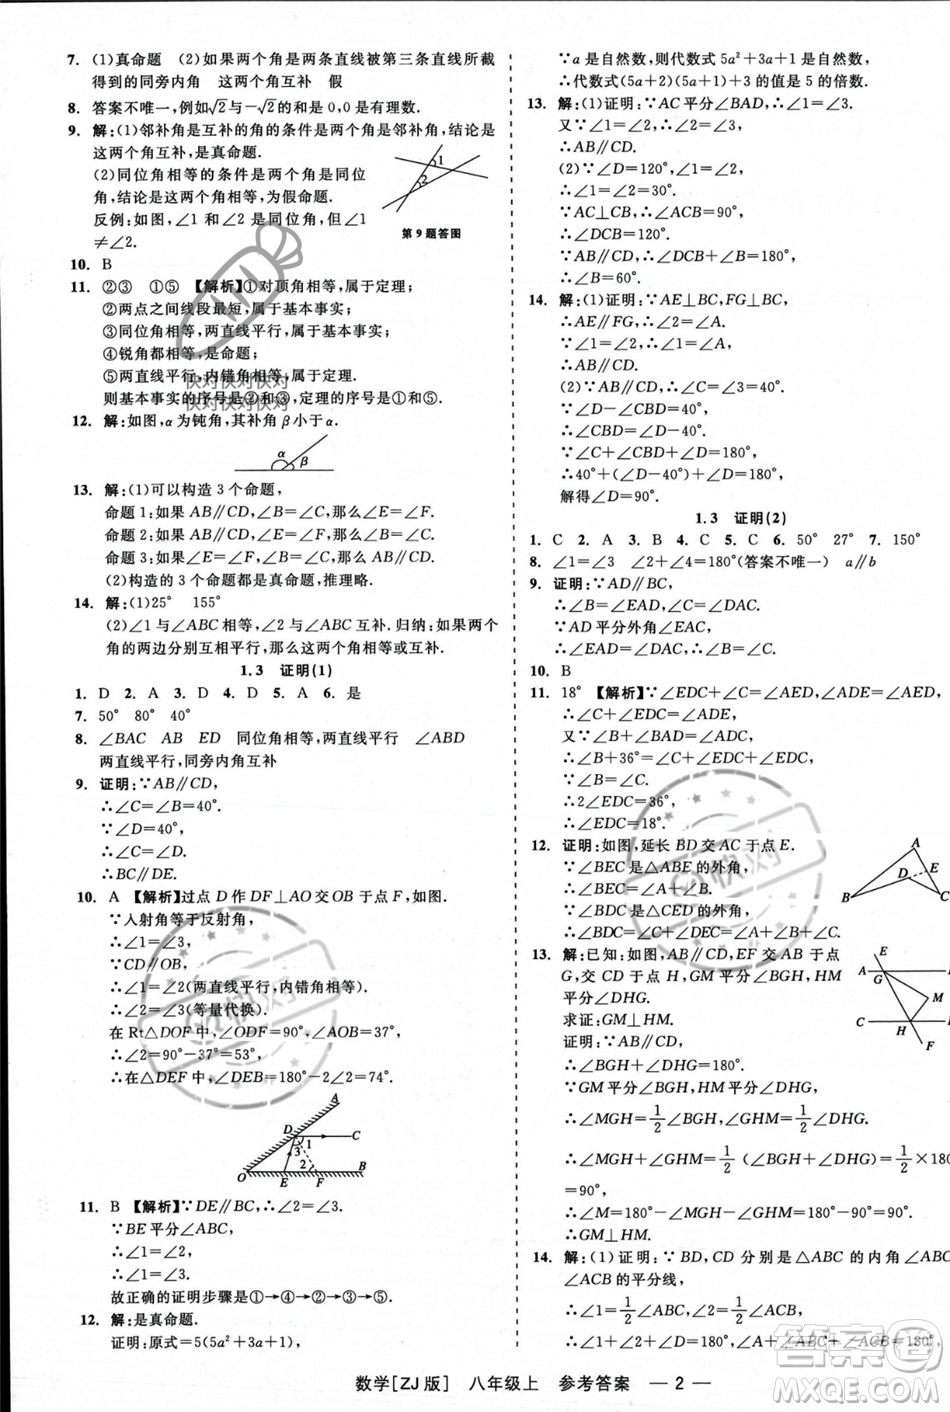 7. (1)真命题 (2)如果两个角是两条直线被第三条直线所截
得到的同旁内角 这两个角互补 假
8. 答案不唯一,例如√2与-√2的和是0,0是有理数.
9. 解:(1)邻补角是互补的角的条件是两个角是邻补角,结论是
这两个角互补,是真命题.
(2)同位角相等的条件是两个角是同位
角,结论是这两个角相等,为假命题.
反例:如图,∠1与∠2是同位角,但∠1
≠∠2.
1
2
第9题答图
10. B
11. ②③ ①⑤ 【解析】①对顶角相等,属于定理;
②两点之间线段最短,属于基本事实;
③同位角相等,两直线平行,属于基本事实;
④锐角都相等,是真命题;
⑤两直线平行,内错角相等,属于定理.
则基本事实的序号是②和③,定理的序号是①和⑤.
12. 解:如图,α为钝角,其补角β小于α.
α β
13. 解:(1)可以构造3个命题.
命题1:如果AB∥CD,∠B=∠C,那么∠E=∠F.
命题2:如果AB∥CD,∠E=∠F,那么∠B=∠C.
命题3:如果∠E=∠F,∠B=∠C,那么AB∥CD.
(2)构造的3个命题都是真命题,推理略.
14. 解:(1)25° 155°
(2)∠1与∠ABC相等,∠2与∠ABC互补.归纳:如果两
个角的两边分别互相平行,那么这两个角相等或互补.
1.3 证明(1)
1. D 2. A 3. D 4. D 5. A 6. 是
7. 50° 80° 40°
8. ∠BAC AB ED 同位角相等,两直线平行 ∠ABD
两直线平行,同旁内角互补
9. 证明:∵AB∥CD,
∴∠C=∠B=40°.
∵∠D=40°,
∴∠C=∠D,
∴BC∥DE.
10. A 【解析】过点D作DF⊥AO交OB于点F,如图.
∵入射角等于反射角,
∴∠1=∠3,
∵CD∥OB,
∴∠1=∠2(两直线平行,内错角相等).
∴∠2=∠3(等量代换).
在Rt△DOF中,∠ODF=90°,∠AOB=37°,
∴∠2=90°-37°=53°.
∴在△DEF中,∠DEB=180°-2∠2=74°.
A
D C
1
3
2
O E F B
11. B 【解析】∵DE∥BC,∴∠2=∠3.
∵BE平分∠ABC,
∴∠1=∠2,
∴∠1=∠3.
故正确的证明步骤是①→④→②→③→⑤.
12. 解:是真命题.
证明:原式=5(5a²+3a+1),
∵a是自然数,则代数式5a²+3a+1是自然数,
∴代数式(5a+2)(5a+1)+3的值是5的倍数.
13. 解:(1)证明:∵AC平分∠BAD,∴∠1=∠3.
又∵∠1=∠2,∴∠3=∠2,
∴AB∥CD.
(2)∵∠D=120°,∠1=∠2,
∴∠1=∠2=30°.
∵AC⊥CB,∴∠ACB=90°,
∴∠DCB=120°.
∵AB∥CD,∴∠B+∠DCB=180°,
∴∠B=60°.
14. 解:(1)证明:∵AE⊥BC,FG⊥BC,
∴AE∥FG,∴∠2=∠A.
∵∠1=∠2,∴∠1=∠A.
∴AB∥CD.
(2)∵AB∥CD,
∴∠D+∠CBD+∠3=180°.
∵∠D-∠CBD=60°,
∴∠CBD=∠D-60°.
∵∠C+∠CBD+∠D=180°,
∴40°+(∠D-60°)+∠D=180°,
解得∠D=100°.
1.3 证明(2)
1. C 2. A 3. B 4. C 5. C 6. 50° 27° 7. 150°
8. ∠1=∠3 ∠2+∠4=180°(答案不唯一) a∥b
9. 证明:∵AD∥BC,
∴∠B=∠EAD,∠C=∠DAC.
∵AD平分外角∠EAC,
∴∠EAD=∠DAC.
∴∠B=∠C.
10. B
11. 18° 【解析】∵∠EDC+∠C=∠AED,∠ADE=∠AED,
∴∠C+∠EDC=∠ADE,
又∵∠B=∠C,
∴∠B+36°=∠EDC+∠ADE,
∴2∠EDC=36°,
∴∠EDC=18°.
12. 证明:如图,延长BD交AC于点E.
∵∠BEC是△ABE的外角,
∴∠BEC=∠A+∠B.
∵∠BDC是△CED的外角,
∴∠BDC=∠C+∠DEC=∠A+∠B+∠C.
A
D E
B C
13. 解:已知:如图,AB∥CD,EF交AB于点
G,交CD于点H,GM平分∠BGH,HM
平分∠DHG.
求证:GM⊥HM.
证明:∵AB∥CD,
∴∠BGH+∠DHG=180°.
∵GM平分∠BGH,HM平分∠DHG,
∴∠MGH=1/2∠BGH,∠GHM=1/2∠DHG.
∴∠MGH+∠GHM=1/2(∠BGH+∠DHG)=1/2×180
=90°.
∴∠M=180°-∠MGH-∠GHM=90°.
∴GM⊥HM.
E
A
G
M
C
H
F
14. 解:(1)证明:∵BD,CD分别是△ABC的内角∠ABC,
∠ACB的平分线,
∴∠1=1/2∠ABC,∠2=1/2∠ACB.
∴∠1+∠2+∠D=180°,∠A+∠ABC+∠ACB=180°,
数学[ZJ版] 八年级上 参考答案 — 2 —
快对快对快对
快对快对快对
快对
快对
答案圈
MXQE.COM